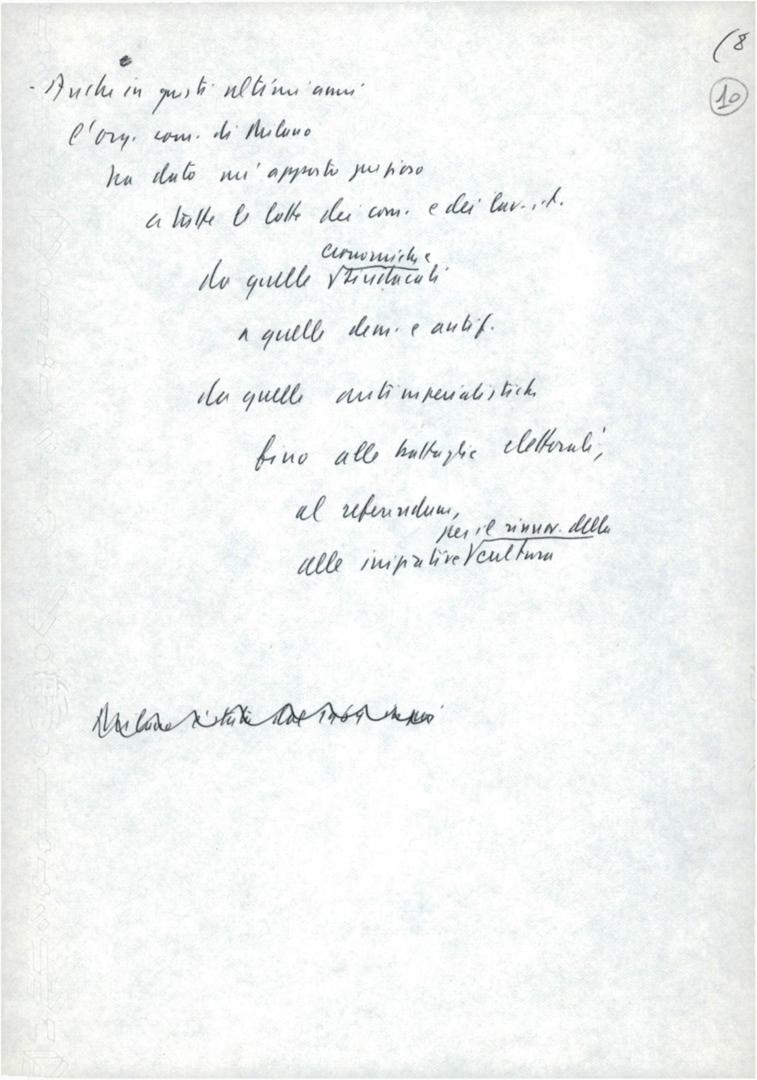 (8
10
- Anche in questi ultimi anni
l'org. com. di Milano
ha dato un' apporto prezioso
a tutte le lotte dei com. e dei lav. it.
economiche
da quelle √sindacali
a quelle dem. e antif.
da quelle antimperialistiche
fino alle battaglie elettorali,
al referendum,
per il rinnov. della
alle iniziative √cultura
Milano è stata dal 1968